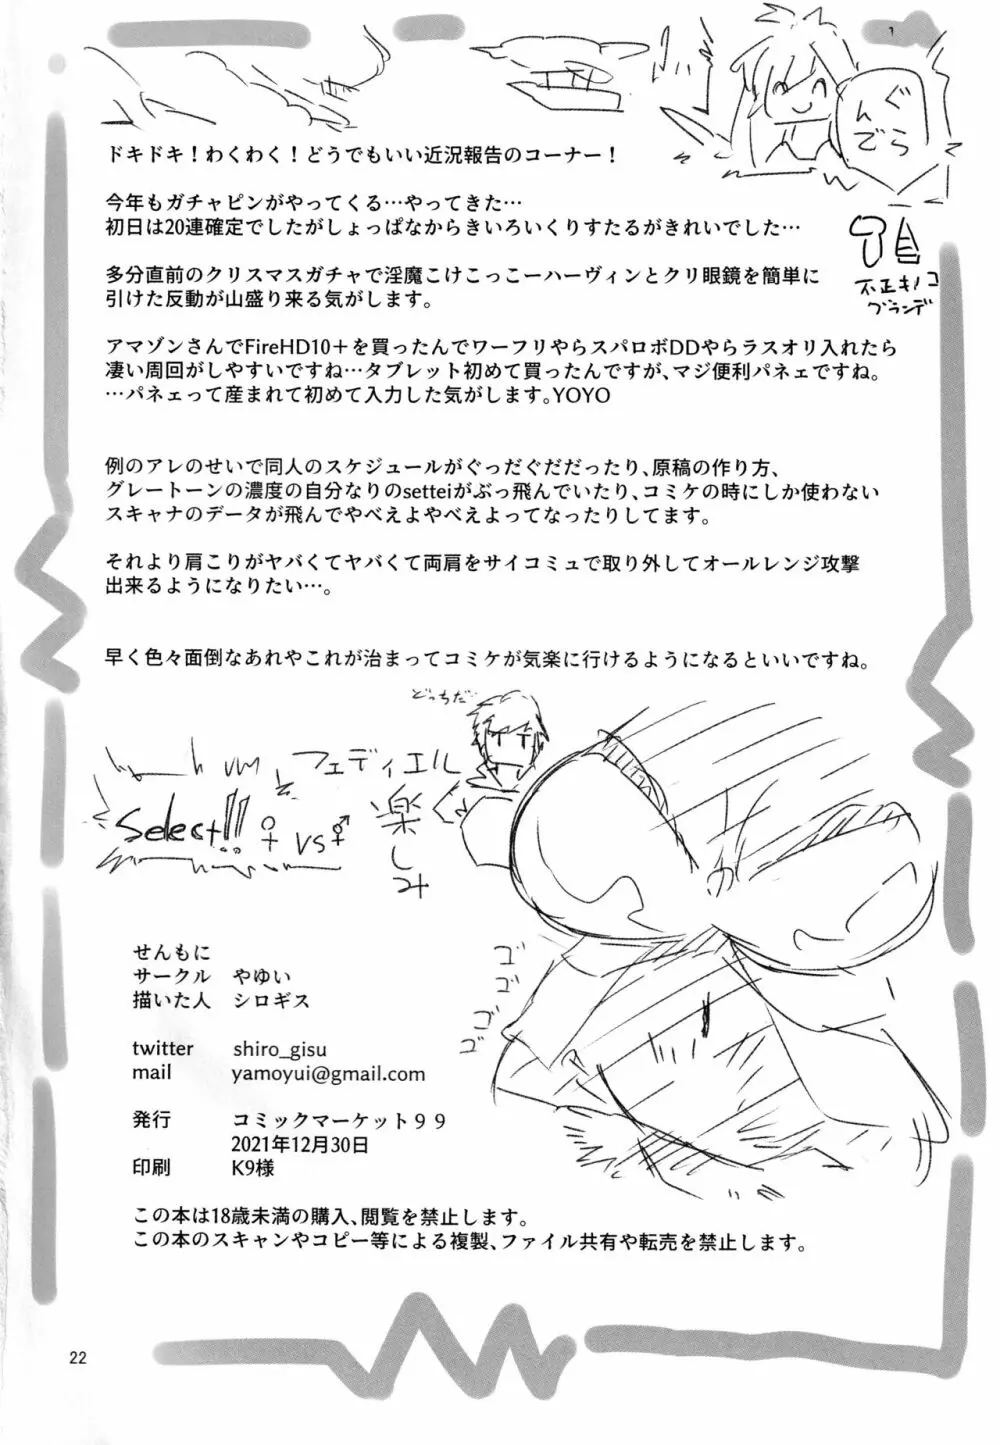 ぐらんで
ドキドキ！わくわく！どうでもいい近況報告のコーナー！
不正キノコ
ブランデ
今年もガチャピンがやってくる…やってきた…
初日は20連確定でしたがしょっぱなからきいろいくりすたるがきれいでした…
多分直前のクリスマスガチャで淫魔こけこっこーハーヴィンとクリ眼鏡を簡単に
引けた反動が山盛り来る気がします。
アマゾンさんでFireHD10＋を買ったんでワーフリやらスパロボDDやらラスオリ入れたら
凄い周回がしやすいですね…タブレット初めて買ったんですが、マジ便利パネェですね。
…パネェって産まれて初めて入力した気がします。YOYO
例のアレのせいで同人のスケジュールがぐっだぐだだったり、原稿の作り方、
グレートーンの濃度の自分なりのsetteiがぶっ飛んでいたり、コミケの時にしか使わない
スキャナのデータが飛んでやべえよやべえよってなったりしてます。
それより肩こりがヤバくてヤバくて両肩をサイコミュで取り外してオールレンジ攻撃
出来るようになりたい…。
早く色々面倒なあれやこれが治まってコミケが気楽に行けるようになるといいですね。
どっちだ…
フェディエル
楽しみ
Select!!
♀ vs ⚧
の
せんもに
サークル　やゆい
描いた人　シロギス
ゴゴゴゴ
twitter　shiro_gisu
mail　yamoyui@gmail.com
発行　コミックマーケット９９
2021年12月30日
印刷　K9様
この本は18歳未満の購入、閲覧を禁止します。
この本のスキャンやコピー等による複製、ファイル共有や転売を禁止します。
22